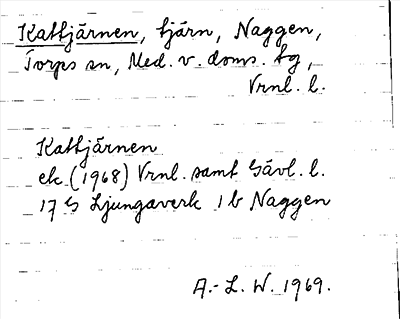 Kattjärnen, tjärn, Naggen,
Torps sn, Med. v. doms. tg,
Vrnl. l.
Kattjärnen
ek. (1968) Vrnl. samt Gävl. l.
17 G Ljungaverk 1 b Naggen
A.-L. W. 1969.